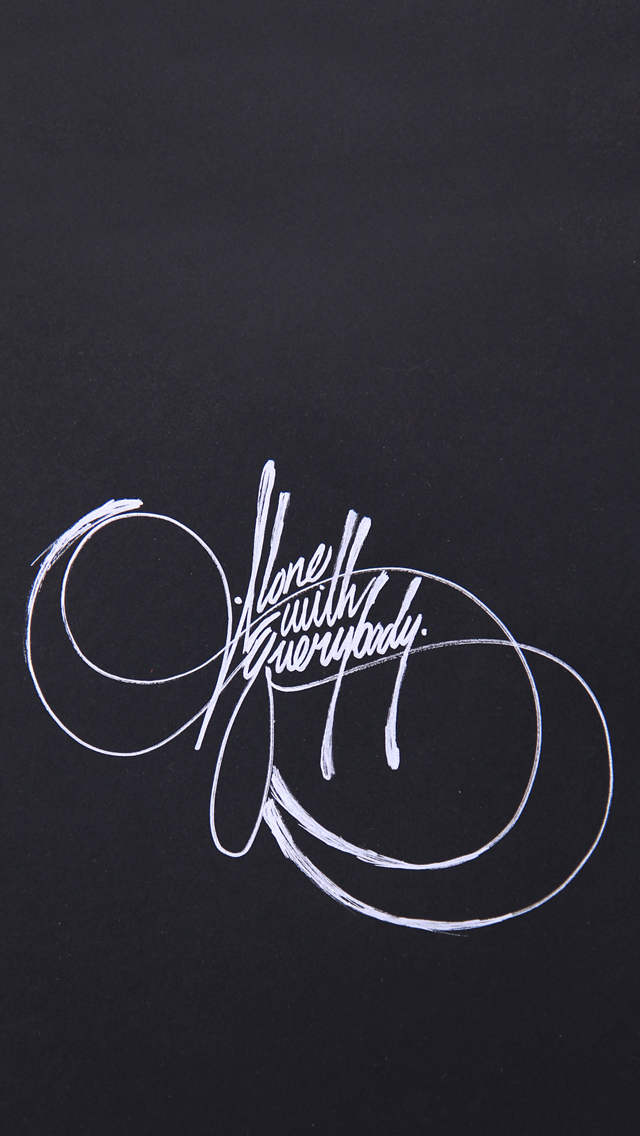 Alone
with
Everybody.